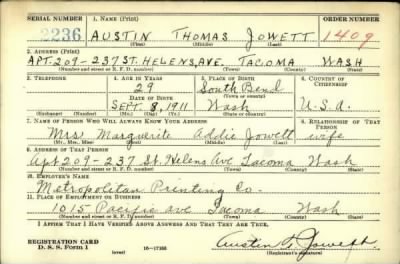 SERIAL NUMBER 1. NAME (Print) ORDER NUMBER
2236 AUSTIN THOMAS JOWETT 1409
(First) (Middle) (Last)
2. ADDRESS (Print)
APT. 209-237 ST. HELENS AVE. TACOMA WASH
(Number and street or R. F. D. number) (Town) (County) (State)
3. TELEPHONE 4. AGE IN YEARS 5. PLACE OF BIRTH 6. COUNTRY OF CITIZENSHIP
29 South Bend
DATE OF BIRTH (Town or county)
SEPT. 8, 1911 Wash U.S.A.
(Exchange) (Number) (Mo.) (Day) (Yr.) (State or country)
7. NAME OF PERSON WHO WILL ALWAYS KNOW YOUR ADDRESS 8. RELATIONSHIP OF THAT PERSON
Mrs Marguerite Addie Jowett wife
(Mr., Mrs., Miss) (First) (Middle) (Last)
9. ADDRESS OF THAT PERSON
Apt 209-237 St. Helens Ave Tacoma Wash
(Number and street or R. F. D. number) (Town) (County) (State)
10. EMPLOYER'S NAME
Metropolitan Printing Co.
11. PLACE OF EMPLOYMENT OR BUSINESS
1015 Pacific ave Tacoma Wash
(Number and street or R. F. D. number) (Town) (County) (State)
I AFFIRM THAT I HAVE VERIFIED ABOVE ANSWERS AND THAT THEY ARE TRUE.
REGISTRATION CARD
D. S. S. Form 1 (over) 16-17105 (Registrant's signature)